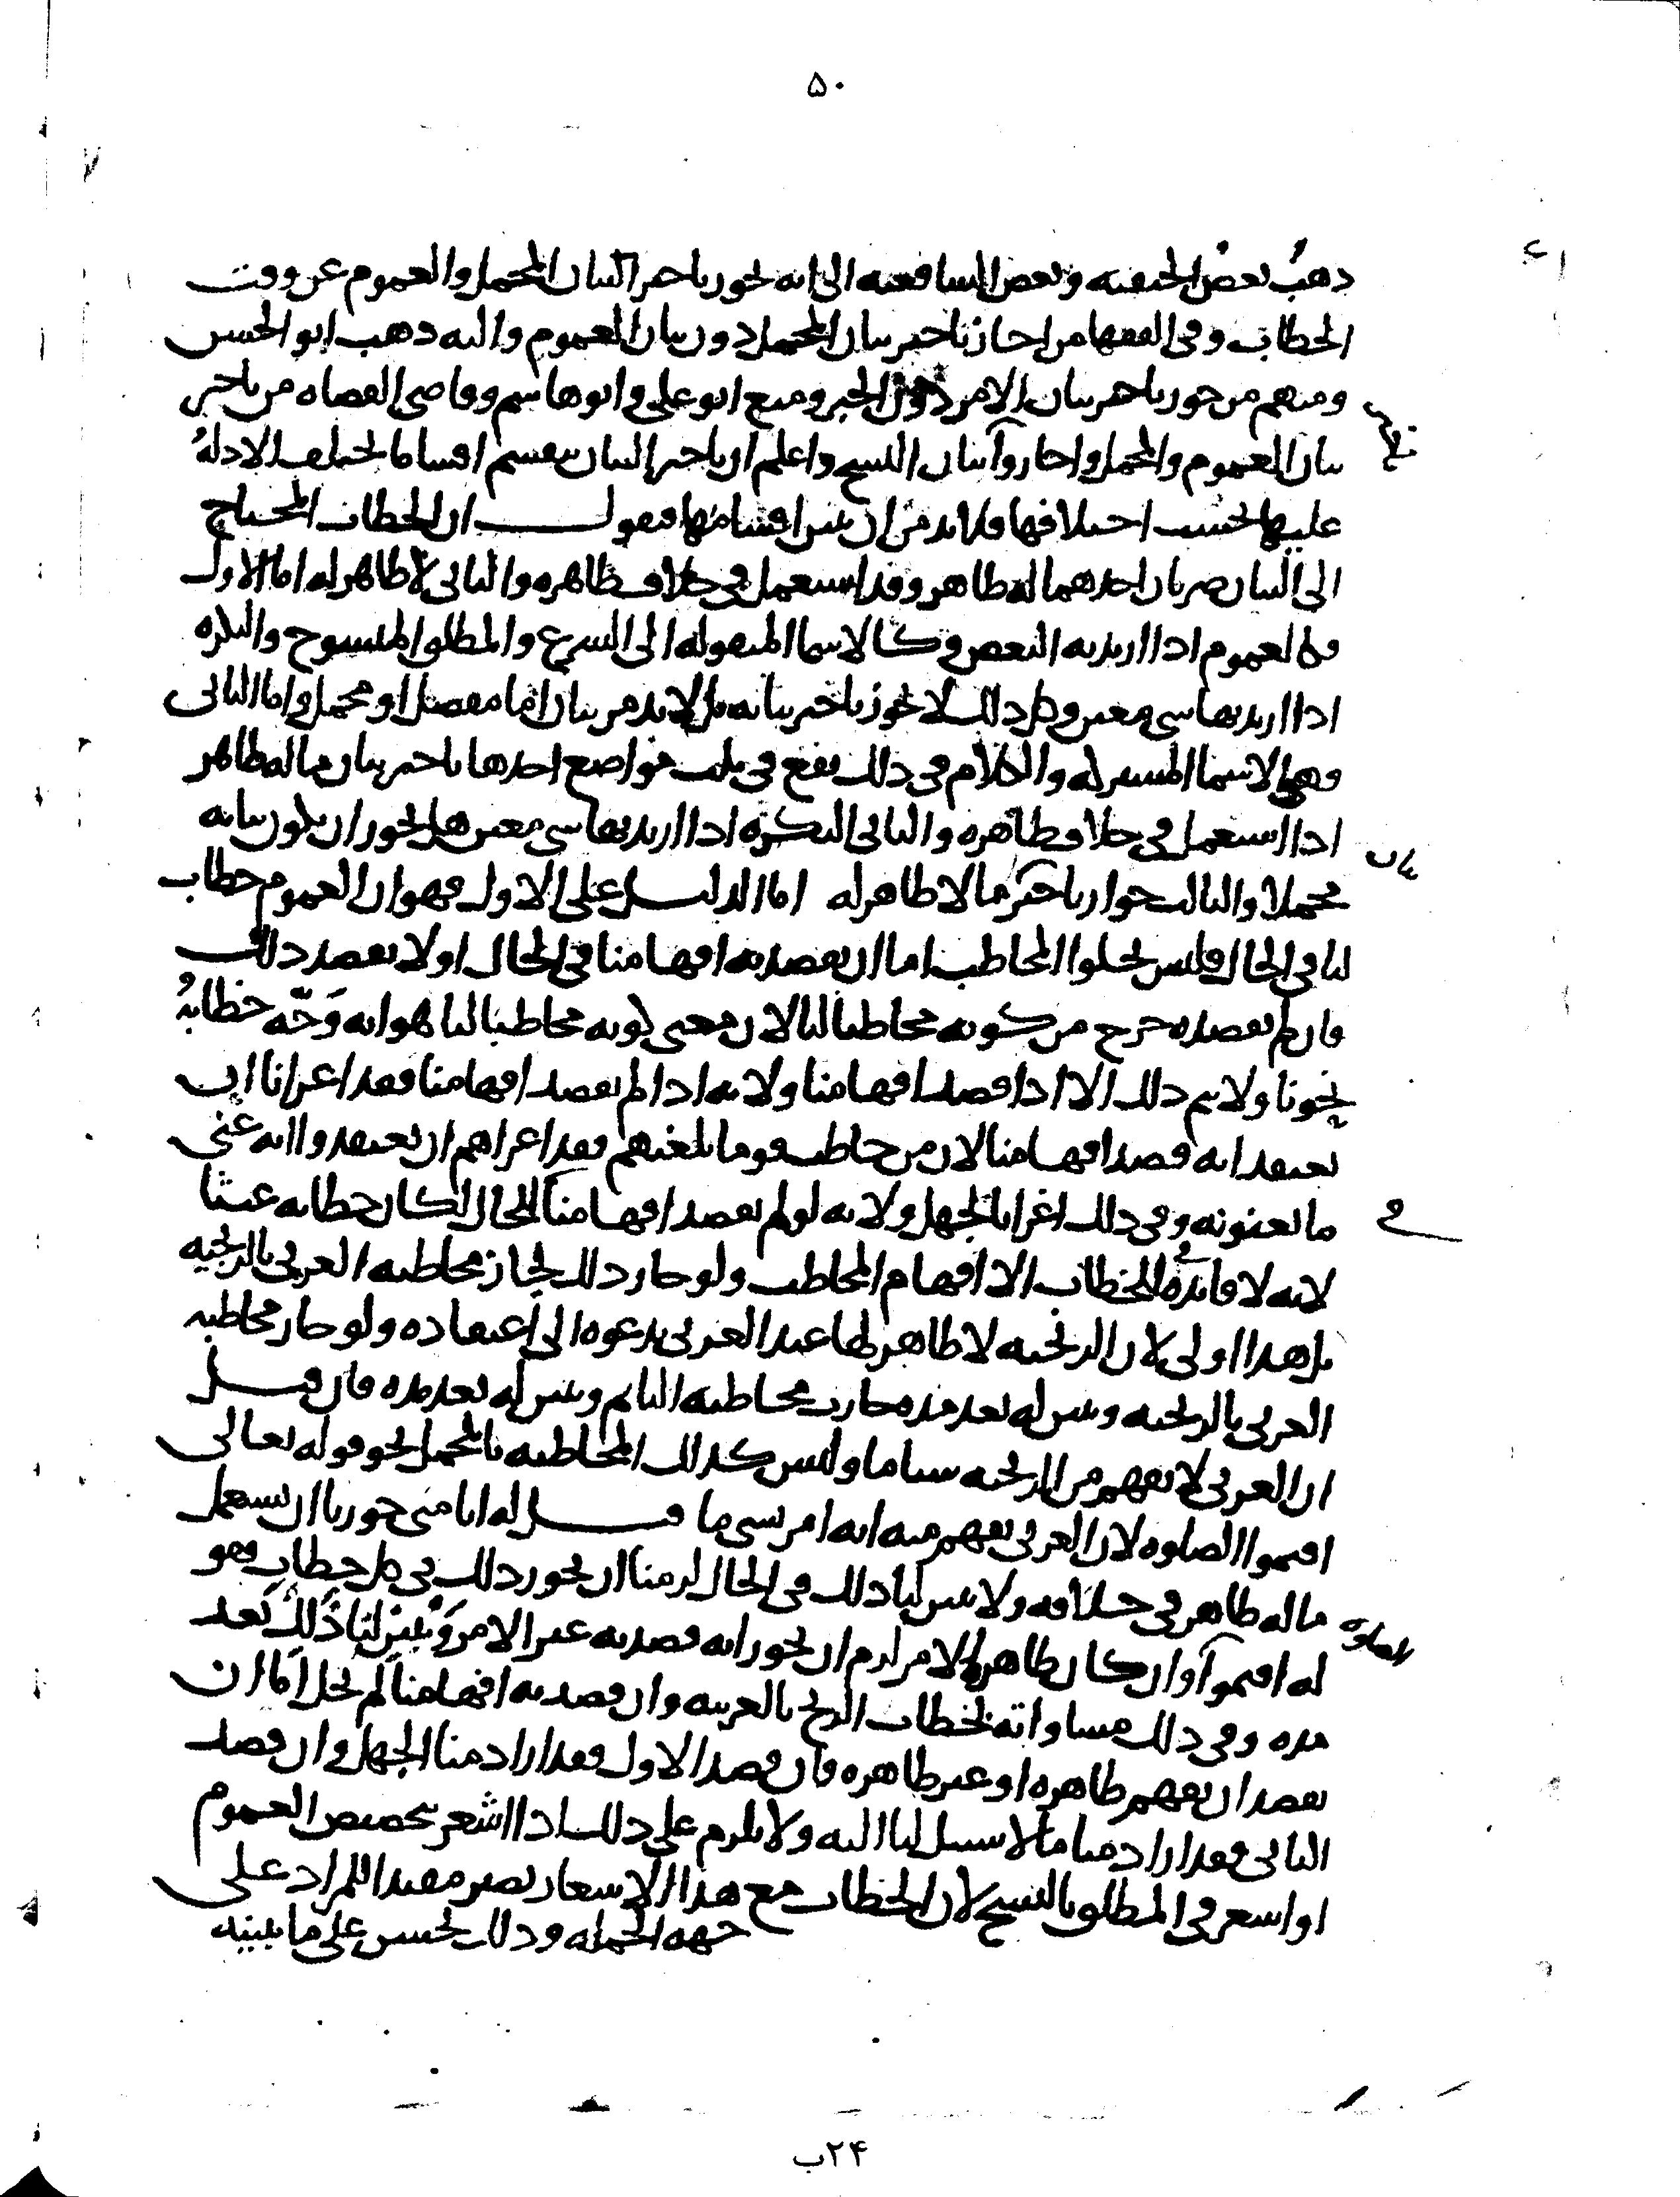 ٥٠
ذهب بعض الحنفيه وبعض الشافعيه الى انه يجوز تاخير البيان المجمل والعموم عن وقت
الخطاب وفى الفقها من اجاز تاخير بيان المجمل دون بيان العموم واليه ذهب ابو الحسن
ومنهم من جوز تاخير بيان الامر دون الخبر ومنع ابو على وابو هاشم وقاضى القضاه من تاخير
بيان العموم والمجمل واجازوا بيان النسخ واعلم ان تاخير البيان ينقسم اقساما تختلف الادلة
عليها بحسب اختلافها فلا بد من ان نبين اقسامها فنقول ان الخطاب المحتاج
الى البيان ضربان احدهما له ظاهر وقد استعمل فى خلاف ظاهره والثانى لا ظاهر له اما الاول
فكالعموم اذا اريد به البعض وكالاسما المنقوله الى الشرع والمطلق المنسوخ والنكره
اذا اريد بها شى معين وكل ذلك لا يجوز تاخير بيانه بل لا بد من بيان اما مفصل او مجمل واما الثانى
وهى الاسما المشتركه والكلام فى ذلك يقع فى ثلث مواضع احدها تاخير بيان ما له ظاهر
اذا استعمل فى خلاف ظاهره والثانى النكره اذا اريد بها شى معين هل يجوز ان يكون بيانه
مجملا والثالث جواز تاخير ما لا ظاهر له اما الدليل على الاول فهو ان العموم خطاب
لنا فى الحال فليس يخلوا المخاطب اما ان يقصد به افهامنا فى الحال او لا يقصد ذلك
فان لم يقصده خرج من كونه مخاطبا لنا لان معنى كونه مخاطبا لنا هو انه وَجّه خطابهُ
نحونا ولا يتم ذلك الا اذا قصد افهامنا ولانه اذا لم يقصد افهامنا فقد اغرانا ان
نعتقد انه قصد افهامنا لان من خاطب قوما بلغتهم فقد اغراهم ان يعتقدوا انه عنى
ما يعنونه وفى ذلك اغرا بالجهل ولانه لو لم يقصد افهامنا فى الحال لكان خطابه عبثا
لانه لا فائده فى الخطاب الا افهام المخاطب ولو جاز ذلك لجاز مخاطبه العربى بالزنجيه
بل هذا اولى لان الزنجيه لا ظاهر لها عند العربى يدعوه الى اعتقاده ولو جاز مخاطبه
العربى بالزنجيه ويبين له بعد مده جازت مخاطبه النائم ويبين له بعد مده فان قيل
ان العربى لا يفهم من الزنجيه شياما وليس كذلك المخاطبه بالمجمل نحو قوله تعالى
اقيموا الصلوه لان العربى يفهم منه انه امر بشى ما قيل له انا متى جوزنا ان يستعمل
ما له ظاهر فى خلافه ولا يبين لنا ذلك فى الحال لزمنا ان نجوز ذلك فى كل خطاب فهو
له اقيموا وان كان ظاهره الامر لزم ان نجوز انه قصد به غير الامر وَيُبَيّنَ لَنَا ذَلِكَ بَعد
الصلوه
مده وفى ذلك مساواته لخطاب الزنج بالعربيه وان قصد به افهامنا لم يخل اما ان
يقصد ان يفهم ظاهره او غير ظاهره فان قصد الاول فقد اراد منا الجهل وان قصد
الثانى فقد اراد منا ما لا سبيل لنا اليه ولا يلزم على ذلك اذا اشعر بتخصيص العموم
او اشعر فى المطلق بالنسخ لان الخطاب مع هذا الاشعار يصير مفيدا للمراد على
جهه الجمله وذلك يحسن على ما نبينه
٢٤ب